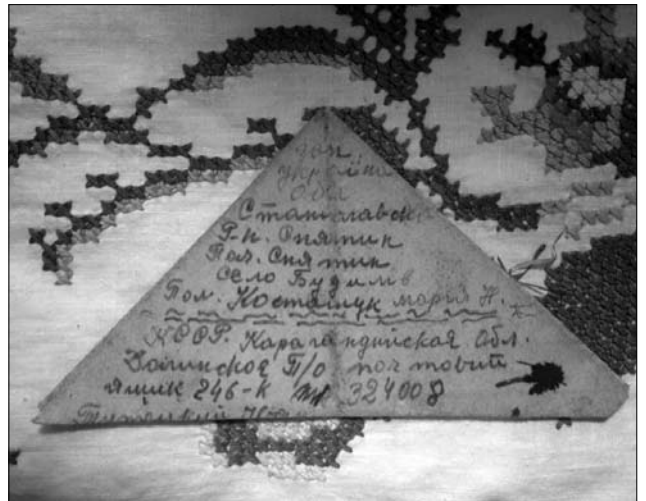 украіна
Обл
Станіславска
Р-н. Снятин
Поч. Снятин
село Будилів
Пол. Костащук марія Н.
КССР. Карагандийская Обл.
П/о почтовий
ящик 246-К 324008